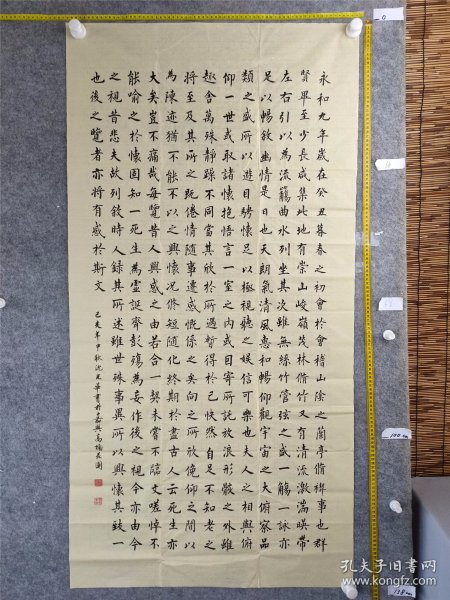 永和九年歲在癸丑暮春之初會於會稽山陰之蘭亭脩禊事也群
賢畢至少長咸集此地有崇山峻嶺茂林脩竹又有清流激湍暎帶
左右引以為流觴曲水列坐其次雖無絲竹管弦之盛一觴一詠亦
足以暢敘幽情是日也天朗氣清風惠和暢仰觀宇宙之大俯察品
類之盛所以遊目騁懷足以極視聽之娛信可樂也夫人之相與俯
仰一世或取諸懷抱悟言一室之內或因寄所託放浪形骸之外雖
趣舍萬殊靜躁不同當其欣於所遇暫得於己怏然自足不知老之
將至及其所之既倦情隨事遷感慨係之矣向之所欣俛仰之間以
為陳迹猶不能不以之興懷況脩短隨化終期於盡古人云死生亦
大矣豈不痛哉每覽昔人興感之由若合一契未嘗不臨文嗟悼不
能喻之於懷固知一死生為虛誕齊彭殤為妄作後之視今亦由今
之視昔悲夫故列敘時人錄其所述雖世殊事異所以興懷其致一
也後之覽者亦將有感於斯文
己亥年中秋沈華書於嘉興高橋
0
100cm
138cm
孔夫子旧书网
kongfz.com